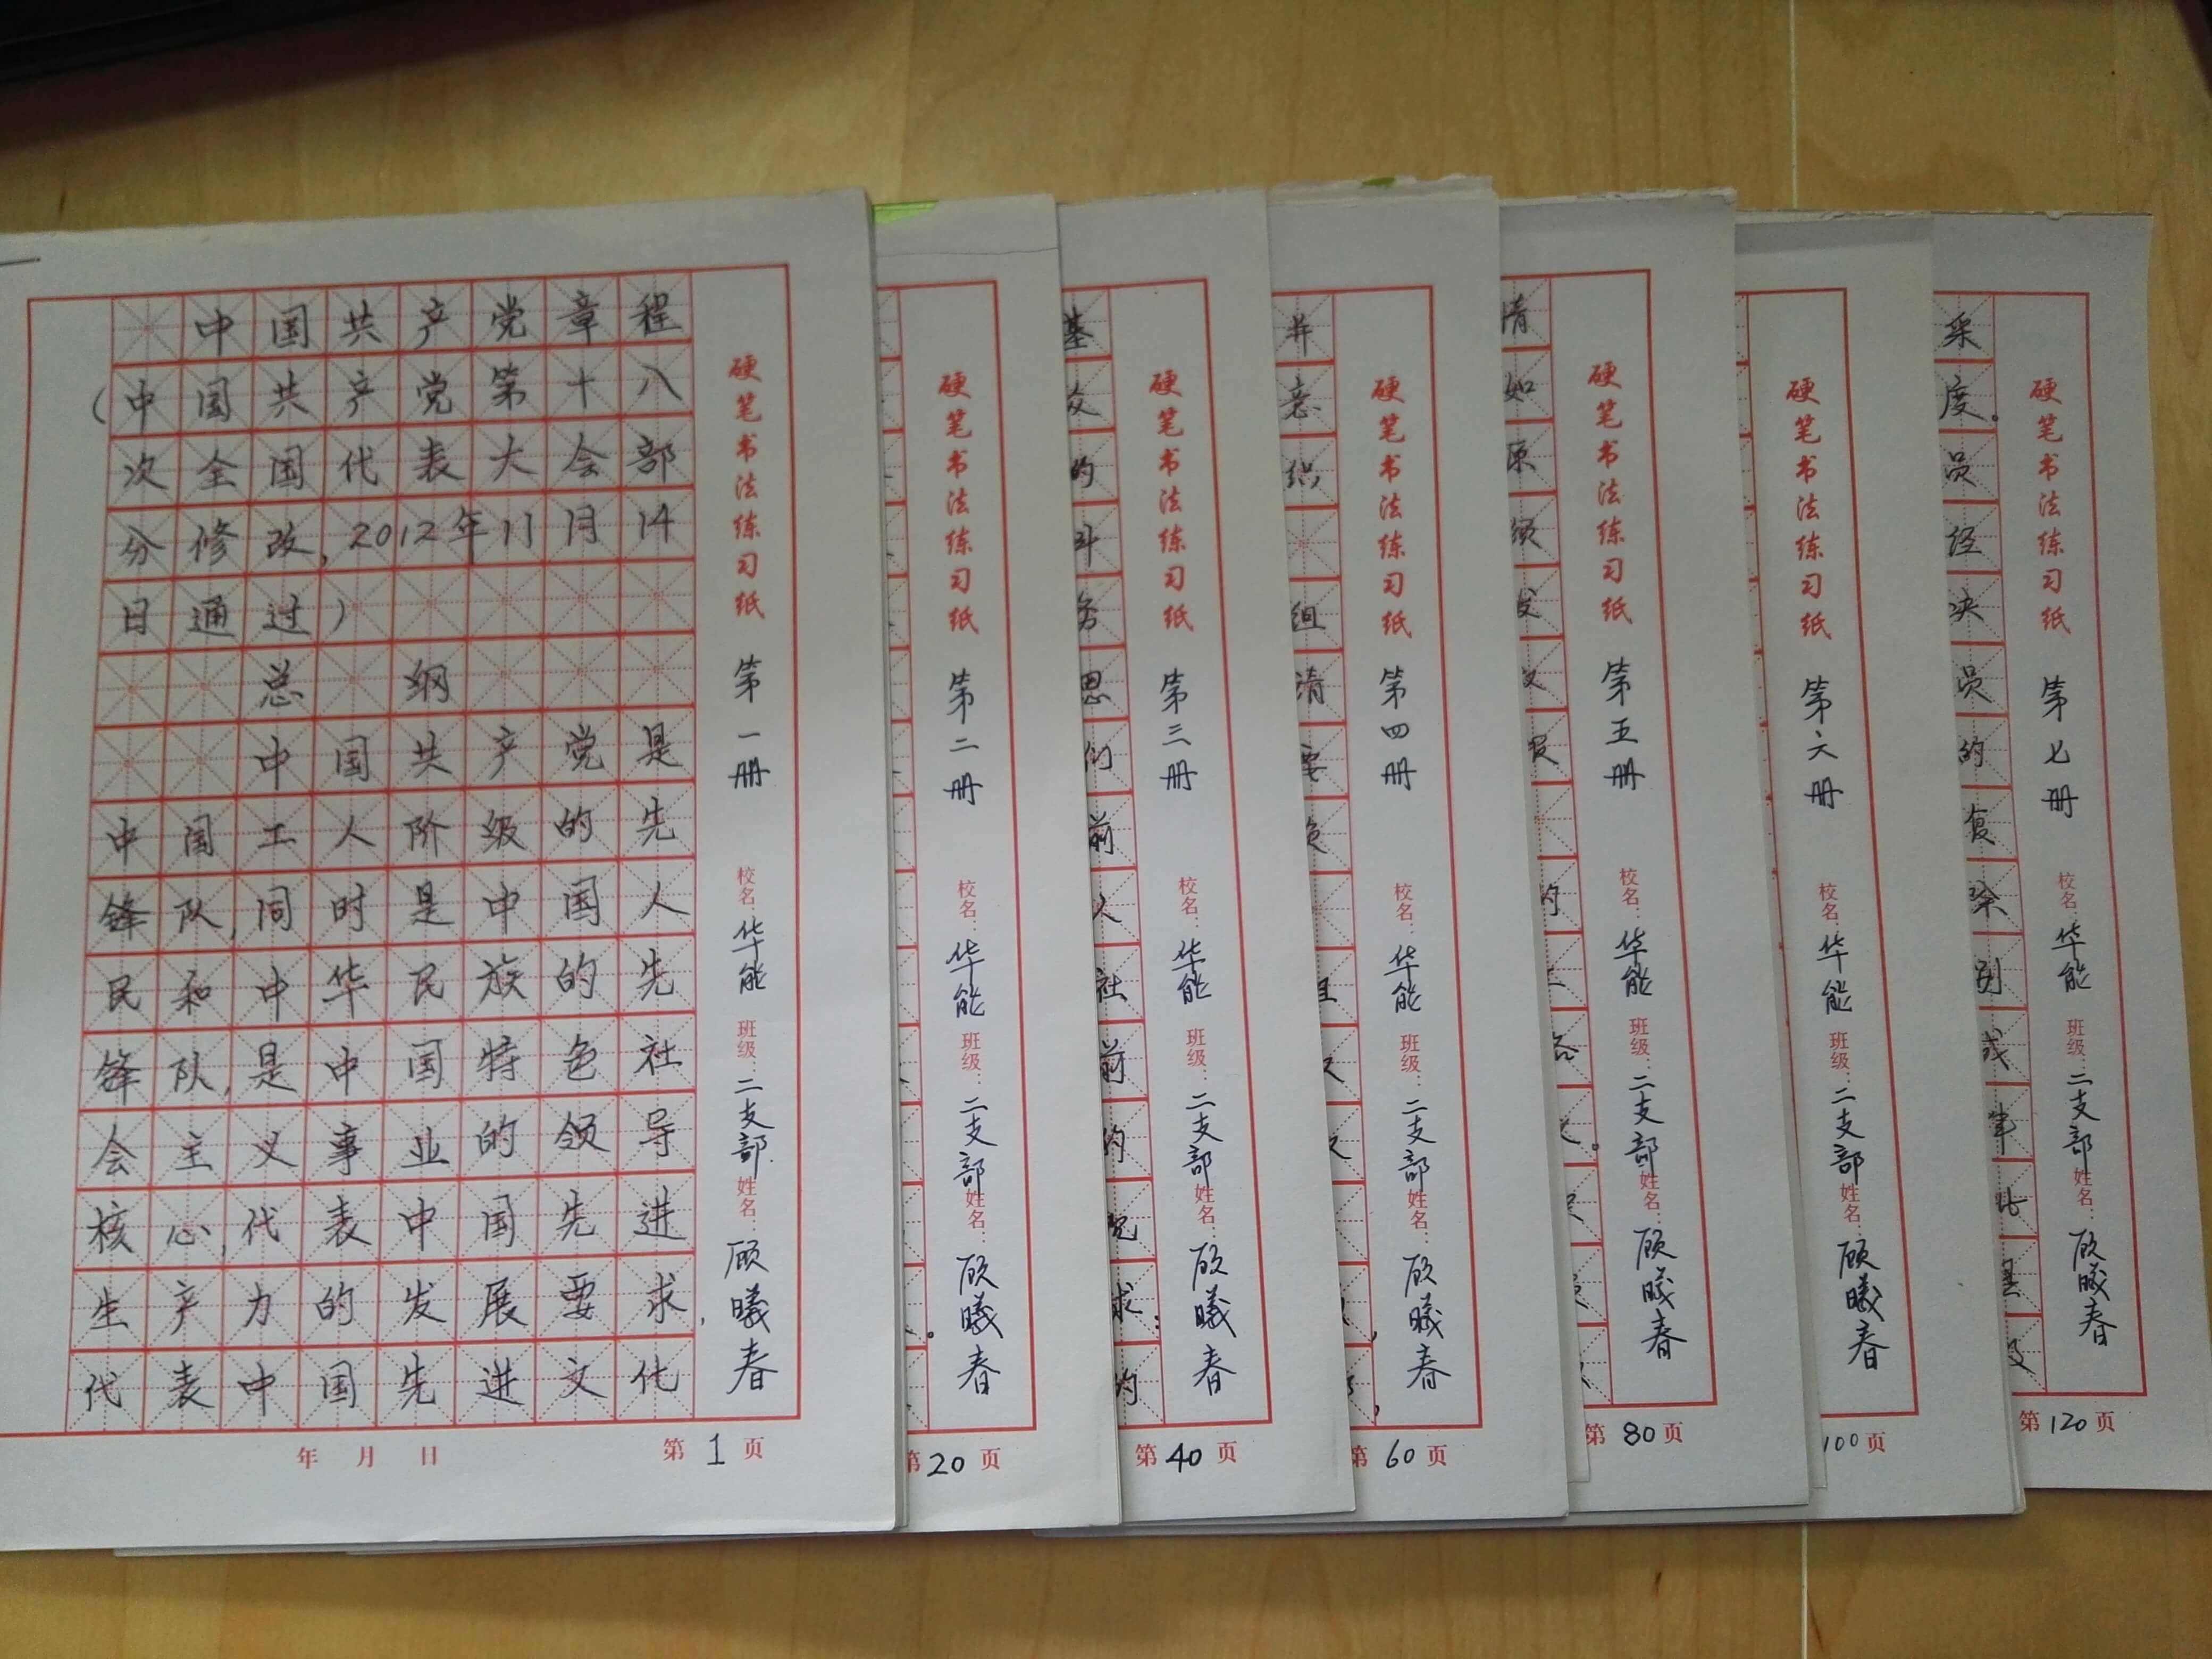 中国共产党章程
(中国共产党第十八
次全国代表大会部
分修改,2012年11月14
日通过)
总 纲
中国共产党是
中国工人阶级的先
锋队,同时是中国人
民和中华民族的先
锋队,是中国特色社
会主义事业的领导
核心,代表中国先进
生产力的发展要求,
代表中国先进文化
年 月 日
第1页
硬笔书法练习纸 第一册 校名:华能 班级:二支部 姓名:顾曦春
硬笔书法练习纸 第二册 校名:华能 班级:二支部 姓名:顾曦春
第20页
基
的
斗
务
思
们
前
人
社
前
的
求:
的
硬笔书法练习纸 第三册 校名:华能 班级:二支部 姓名:顾曦春
第40页
并
意
织
组
清
要
硬笔书法练习纸 第四册 校名:华能 班级:二支部 姓名:顾曦春
第60页
情
如
原
须
发
硬笔书法练习纸 第五册 校名:华能 班级:二支部 姓名:顾曦春
第80页
硬笔书法练习纸 第六册 校名:华能 班级:二支部 姓名:顾曦春
100页
采
度。
员
经
决
员
的
复
除
别
或
硬笔书法练习纸 第七册 校名:华能 班级:二支部 姓名:顾曦春
第120页